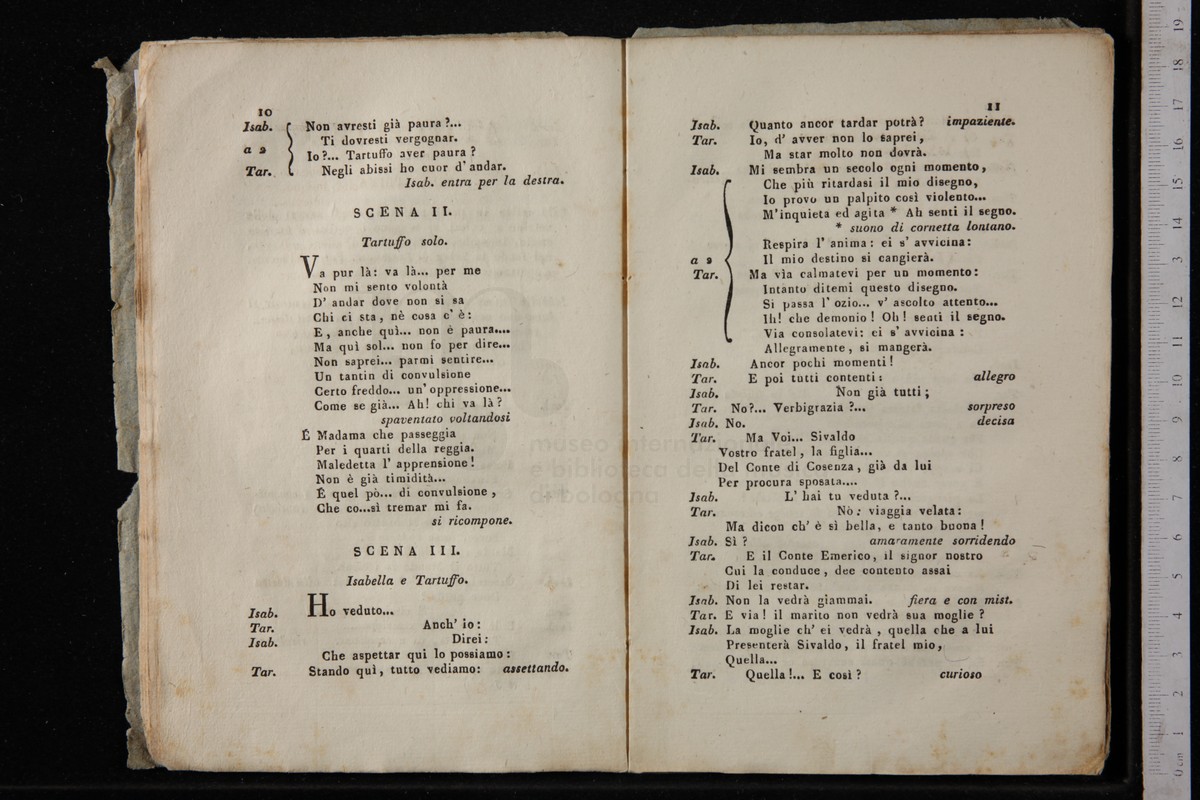 10
Isab. Non avresti già paura?...
Ti dovresti vergognar.
a 2
Io?... Tartuffo aver paura?
Tar. Negli abissi ho cuor d' andar.
Isab. entra per la destra.
SCENA II.
Tartuffo solo.
Va pur là: va là... per me
Non mi sento volontà
D' andar dove non si sa
Chi ci sta, nè cosa c' è:
E, anche quì... non è paura....
Ma quì sol... non fo per dire...
Non saprei... parmi sentire...
Un tantin di convulsione
Certo freddo... un' oppressione...
Come se già... Ah! chi va là?
spaventato voltandosi
É Madama che passeggia
Per i quarti della reggia.
Maledetta l' apprensione!
Non è già timidità...
É quel pò... di convulsione,
Che co...sì tremar mi fa.
si ricompone.
SCENA III.
Isabella e Tartuffo.
Isab. Ho veduto...
Tar. Anch' io:
Isab. Direi:
Che aspettar qui lo possiamo:
Tar. Stando quì, tutto vediamo: assettando.
11
Isab. Quanto ancor tardar potrà? impaziente.
Tar. Io, d' avver non lo saprei,
Ma star molto non dovrà.
Isab. Mi sembra un secolo ogni momento,
Che più ritardasi il mio disegno,
Io provo un palpito così violento...
M'inquieta ed agita * Ah senti il segno.
* suono di cornetta lontano.
Respira l' anima: ei s' avvicina:
a 2 Il mio destino si cangierà.
Tar. Ma vìa calmatevi per un momento:
Intanto ditemi questo disegno.
Si passa l' ozio... v' ascolto attento...
Ih! che demonio! Oh! senti il segno.
Via consolatevi: ei s' avvicina:
Allegramente, si mangerà.
Isab. Ancor pochi momenti!
Tar. E poi tutti contenti: allegro
Isab. Non già tutti;
Tar. No?... Verbigrazia?... sorpreso
Isab. No. decisa
Tar. Ma Voi... Sivaldo
Vostro fratel, la figlia...
Del Conte di Cosenza, già da lui
Per procura sposata....
Isab. L' hai tu veduta?...
Tar. Nò: viaggia velata:
Ma dicon ch' è sì bella, e tanto buona!
Isab. Sì? amaramente sorridendo
Tar. E il Conte Emerico, il signor nostro
Cui la conduce, dee contento assai
Di lei restar.
Isab. Non la vedrà giammai. fiera e con mist.
Tar. E via! il marito non vedrà sua moglie?
Isab. La moglie ch' ei vedrà, quella che a lui
Presenterà Sivaldo, il fratel mio,
Quella...
Tar. Quella!... E così? curioso
museo internazionale
e biblioteca della
di bologna
0 cm 1 2 3 4 5 6 7 8 9 10 11 12 13 14 15 16 17 18 19